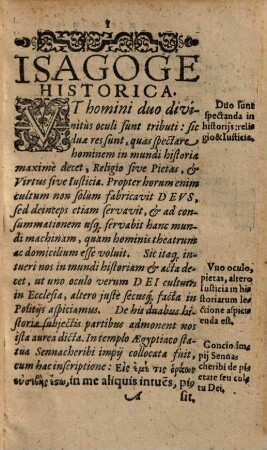 1
ISAGOGE
HISTORICA.
VT homini duo divi-
nitùs oculi sunt tributi: sic
duæ res sunt, quas spectare
hominem in mundi historia
maximè decet, Religio sive Pietas, &
Virtus sive Iusticia. Propter horum enim
cultum non solùm fabricavit DEVS,
sed deinceps etiam servavit, & ad con-
summationem usq; servabit hanc mun-
di machinam, quam hominis theatrum
ac domicilium esse voluit. Sic itaq; in-
tueri nos in mundi historiam & acta de-
cet, ut uno oculo verum DEI cultum
in Ecclesia, altero justè secusq; facta in
Politijs aspiciamus. De his duabus hi-
storiæ subjectis partibus admonent nos
ista aurea dicta. In templo Ægyptiaco sta-
tua Sennacheribi impij collocata fuit,
cum hac inscriptione: Εἰς ἐμέ τις ὁράων
εὐσεβὴς ἔςω, in me aliquis intuēs, pio
A sit,
Duo sunt
spectanda in
historijs: reli
gio & Iusticia.
Vno oculo,
pietas, altero
Iusticia in hi
storiarum le-
ctione aspici-
enda est.
Concio im
pij Senna-
cheribi de pi-
etate seu cul-
tu Dei.